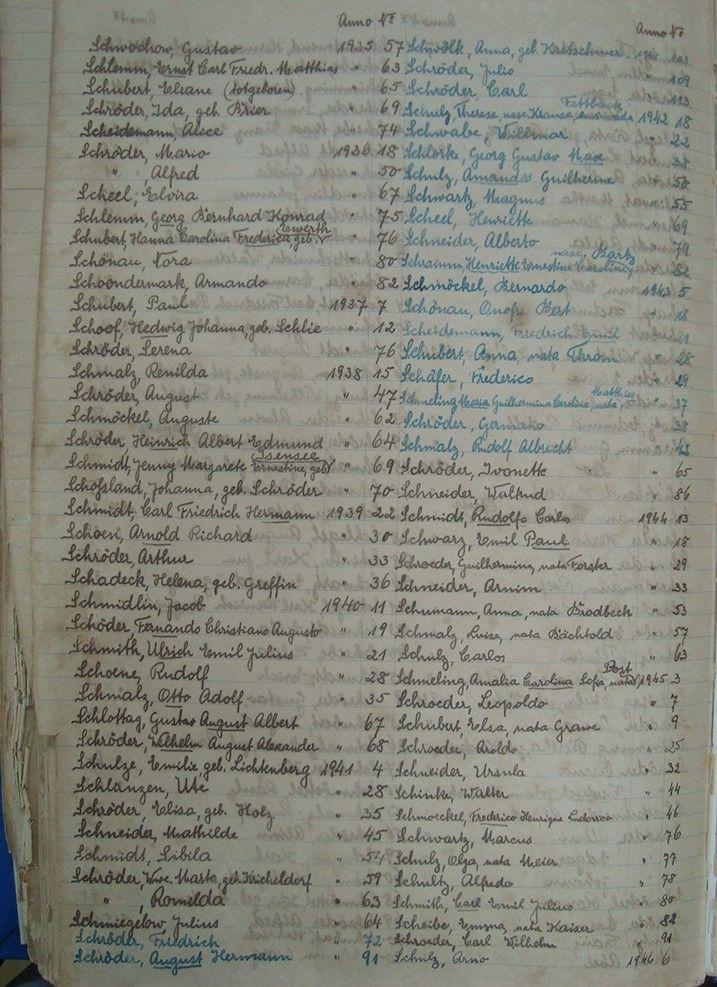 Anno No
Schwochow, Gustav 1935 57
Schlemm, Ernst Carl Friedr. Matthias " 63
Schubert, Eliane (totgeboren) " 65
Schröder, Ida, geb. Brier " 69
Scheidemann Alice " 74
Schröder, Mario 1936 18
" Alfred " 50
Scheel, Elvira " 67
Schlemm, Georg Bernhard Konrad " 75
Schubert, Hanna Carolina Frederica, geb. Ewerth " 76
Schönau, Nora " 80
Schööndermark, Armando " 82
Schubert, Paul 1937 7
Schoof, Hedwig Johanna, geb. Schlie " 12
Schröder, Serena " 76
Schmalz, Renilda 1938 15
Schröder, August " 47
Schmöckel, Auguste " 62
Schröder, Heinrich Albert Edmund " 64
Schmidt, Jenny Margarete Ernestine, geb. Isensee " 69
Schossland, Johanna, geb. Schröder " 70
Schmidt, Carl Friedrich Hermann 1939 22
Schoen, Arnold Richard " 30
Schröder, Arthur " 33
Schadeck, Helena, geb. Greffin " 36
Schmidlin, Jacob 1940 11
Schröder, Fernando Christiano Augusto " 19
Schmith, Ulrich Emil Julius " 21
Schoene, Rudolf " 28
Schmalz, Otto Adolf " 35
Schlottag, Gustav August Albert " 67
Schröder, Wilhelm August Alexander " 68
Schulze, Emilie, geb. Lichtenberg 1941 4
Schlänzen, Ute " 28
Schröder, Elisa, geb. Holz " 35
Schneider, Mathilde " 45
Schmidt, Sibila " 54
Schröder, Wwe. Marta, geb. Kricheldorf " 59
" , Romilda " 63
Schmiegelow, Julius " 64
Schröder, Friedrich " 72
Schröder, August Hermann " 91
Anno No
Schwölk, Anna, geb. Kretschmer 1941 103
Schröder, Julio " 109
Schröder, Carl " 113
Schulz, Therese, nasc. Krause, Fettback 1942 18
Schwabe, Willmar " 22
Schlorke, Georg Gustav Max " 38
Schulz, Amandas Guilherme " 50
Schwartz, Magnus " 55
Scheel, Henriette " 69
Schneider, Alberto " 79
Schramm, Henriette Ernestine Caroline, nasc. Bartz " 82
Schmöckel, Bernardo 1943 5
Schönau, Onofre Bert " 18
Scheidemann, Friedrich Emil " 21
Schubert, Anna, nata Throm " 28
Schäfer, Frederico " 29
Schmeling Maria Guilhermina Carolina, nata Matthies " 37
Schröder, Germano " 38
Schmalz, Rudolf Albrecht " 43
Schröder, Ivonette " 65
Schneider, Walfrid " 86
Schmidt, Rudolfo Carlos 1944 13
Schwarz, Emil Paul " 18
Schroeder, Guilhermina, nata Forster " 29
Schneider, Arnim " 33
Schumann, Anna, nata Brodbeck " 53
Schmalz, Luise, nata Bächtold " 57
Schulz, Carlos " 63
Schmeling, Amalia Carolina Sofia, nata Post 1945 3
Schroeder, Leopoldo " 7
Schubert, Elsa, nata Grawe " 9
Schroeder, Aroldo " 25
Schneider, Ursula " 32
Schinke, Walter " 44
Schmoeckel, Frederico Henrique Ludovico " 46
Schwartz, Marcus " 76
Schulz, Olga, nata Meier " 77
Schultz, Alfredo " 78
Schmith, Carl Emil Julius " 80
Scheibe, Emma, nata Kaiser " 82
Schroeder, Carl Wilhelm " 91
Schulz, Arno 1946 6